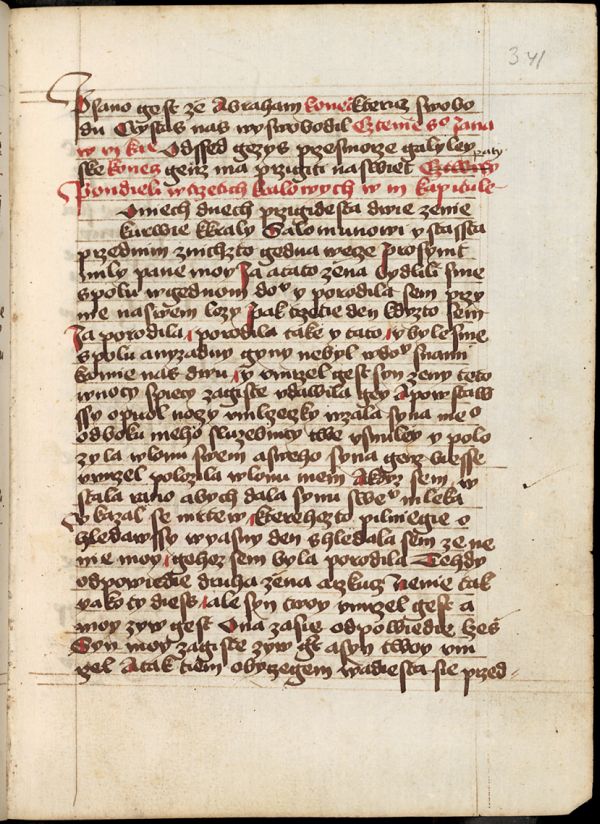 341
Psano gest ze Abraham konec kteruz swobo
du Crystus nas wyswobodil Cztenie so Jana
w vi kæ Odssed gezys przes morze galyley
ske konec genz ma przigiti na swiet Cztwrty
Pondieli w trzetich kralowych w iii kapitule
Oniech dnech przigidesta dwie zenie
kurwie kkraly Salomunowi y stassta
przed nim z nichzto gedna wece Prosymt
mily pane moy Ja a tato zena bydlili sme
spolu w gednom dov y porodila sem przy
nie na swem lozy Pak trzetie den kdyzto sem
Ja porodila porodila take y tato y byle sme
spolu a nyzadny gyny nebyl w dov s nami
kromie nas dwu y vmrzel gest syn zeny teto
w nocy spiecy zagiste vdawila gey A powstaw
ssy o puol nocy vmlczeczky wzala syna me o
od boku meho sluzebnicy twe vsnuley y polo
zyla w lonu swem a sweho syna genz biesse
vmrzel polozila w lonu mem A kdyz sem w
stala rano abych dala synu swev mleka
vkazal se mrtew kterehozto pilniegie o
hledawssy w yasny den shledala sem ze ne
nie moy gehoz sem byla porodila Tehdy
odpowiedie druha zena a rzkuc Nenie tak
yako ty diess ale syn twoy vmrzel gest a
moy zyw gest Ona zasie odpowiedie lzes
Syn moy zagiste zyw gt a syn twoy vm
rzel A tak tiem obyczegem wadiesta sie przed